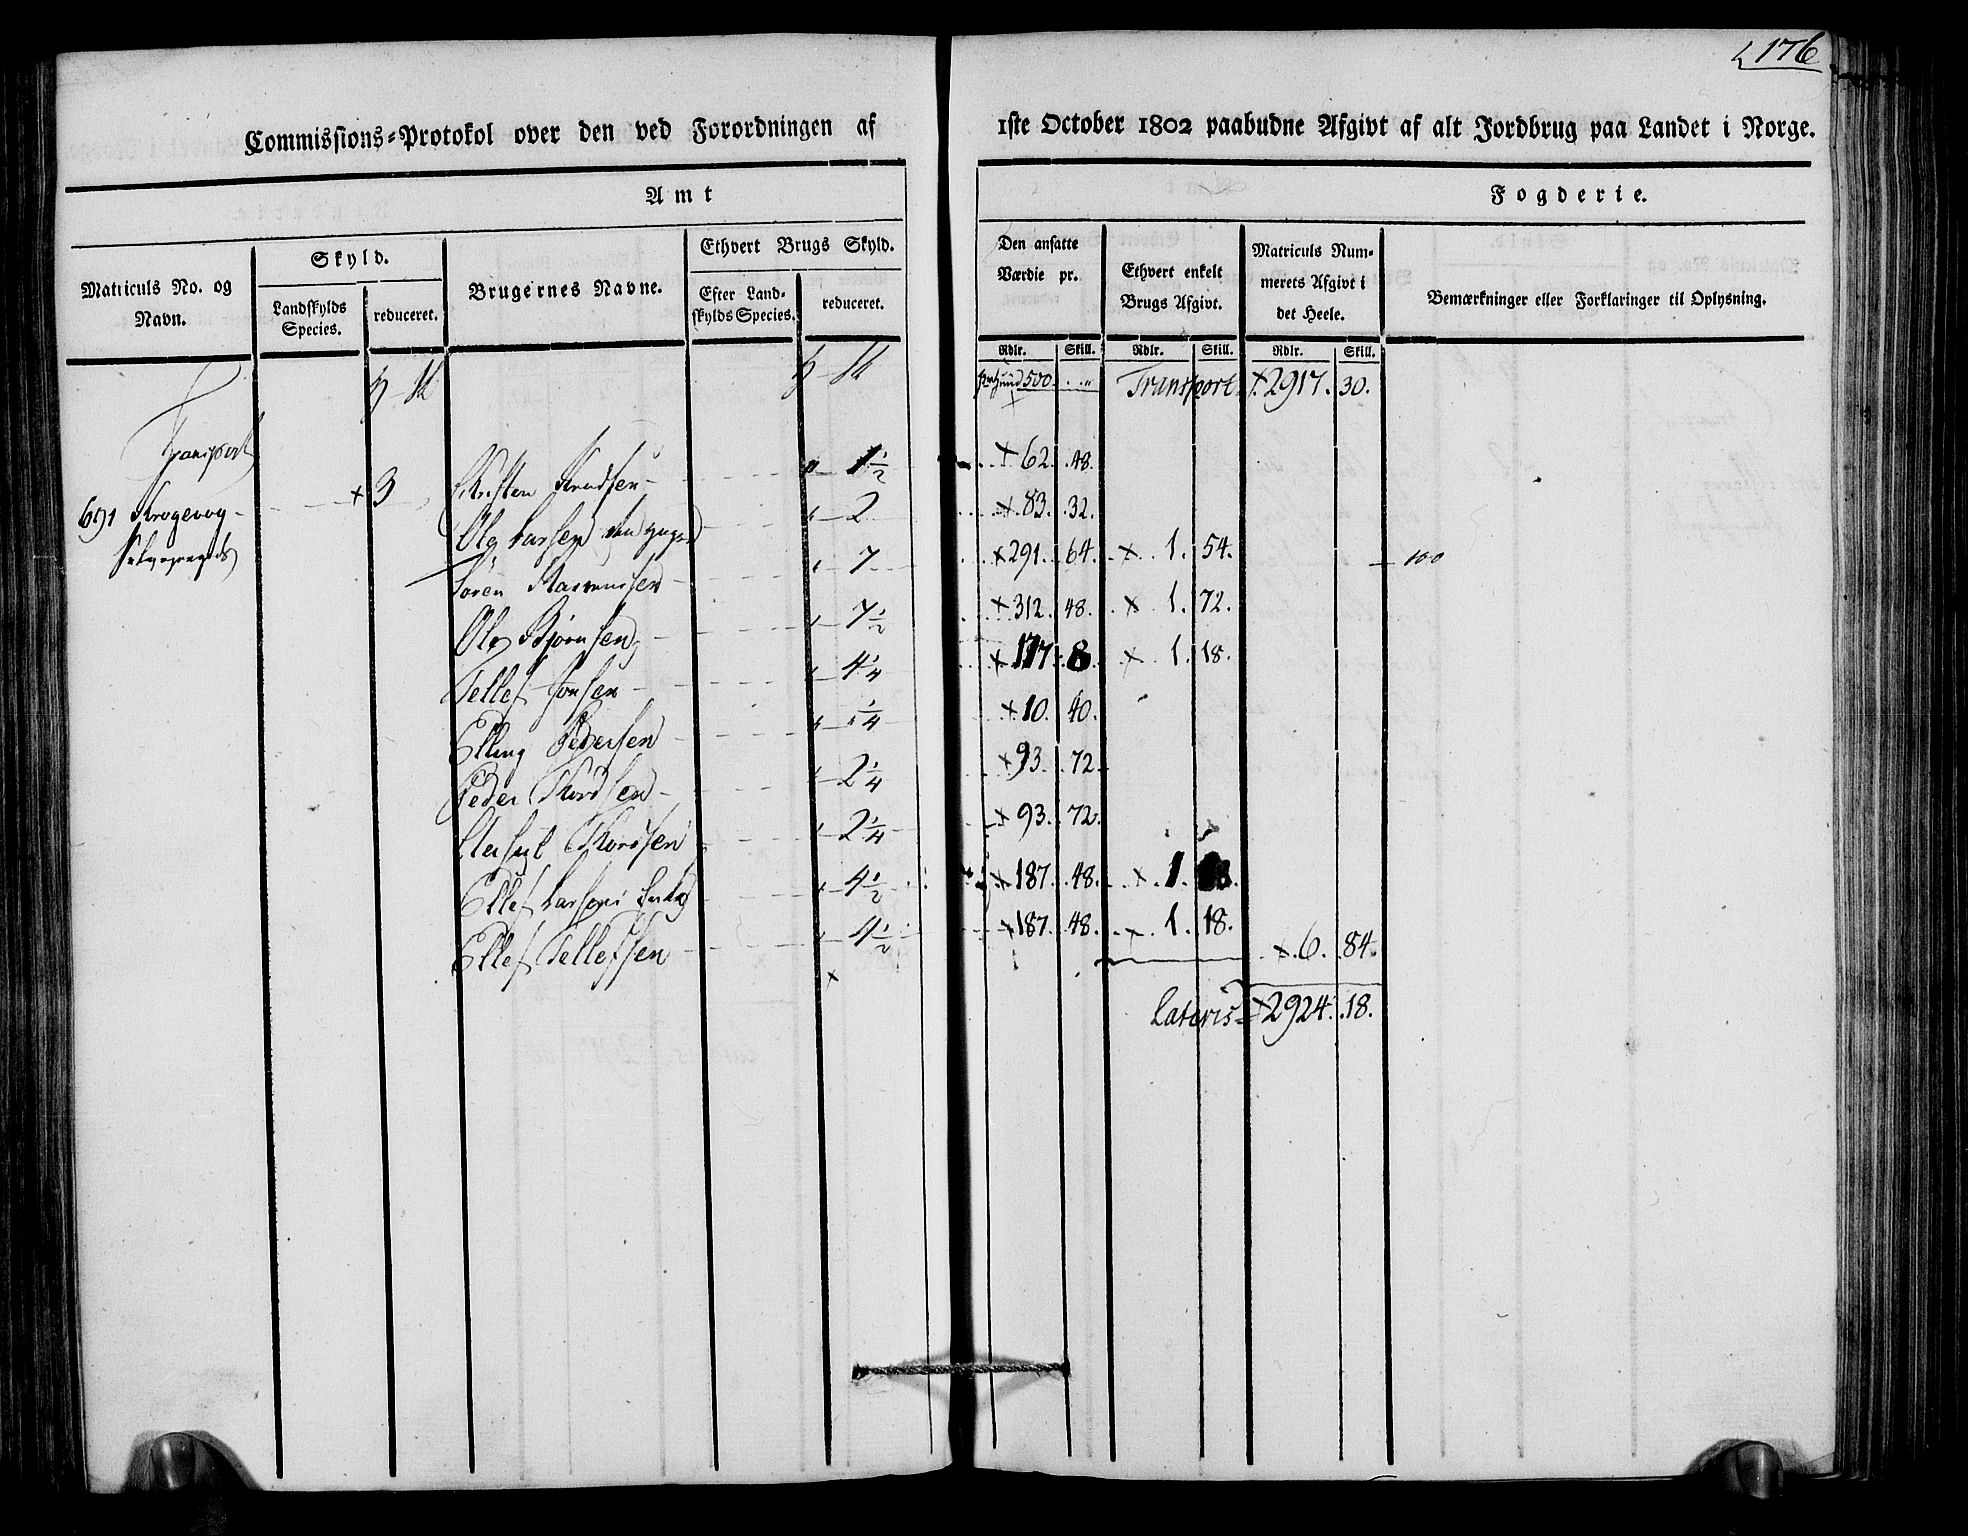 176
Commissions-Protokol over den ved Forordningen af 1ste October 1802 paabudne Afgivt af alt Jordbrug paa Landet i Norge.
Amt Fogderie.
Matriculs No. og Navn.
Skyld.
Landskylds Species.
reduceret.
Brugernes Navne.
Ethvert Brugs Skyld.
Efter Landskylds Species.
reduceret.
Den ansatte Værdie pr.
Ethvert enkelt Brugs Afgivt.
Matriculs Nummerets Afgivt i det Heele.
Bemærkninger eller Forklaringer til Oplysning.
Rdlr. Skill. Rdlr. Skill. Rdlr. Skill.
500 Transport 2917. 30.
Transport
691 Krogevog 3 Christen Knudsen 1 1/2 62. 48.
Ole Larsen 2 83. 32.
Søren Rasmussen 7 291. 64. 1. 54. 100
Ole Bjørnsen 7 1/2 312. 48. 1. 72.
Tellef Jonsen 4 1/4 177. 8. 1. 18.
Elling Pedersen 1/4 10. 40.
Peder Thordsen 2 1/4 93. 72.
Thordsen 2 1/4 93. 72.
Ellef Larsen 4 1/2 187. 48. 1.
Ellef Tellefsen 4 1/2 187. 48. 1. 18. 6. 84.
Lateris 2924. 18.